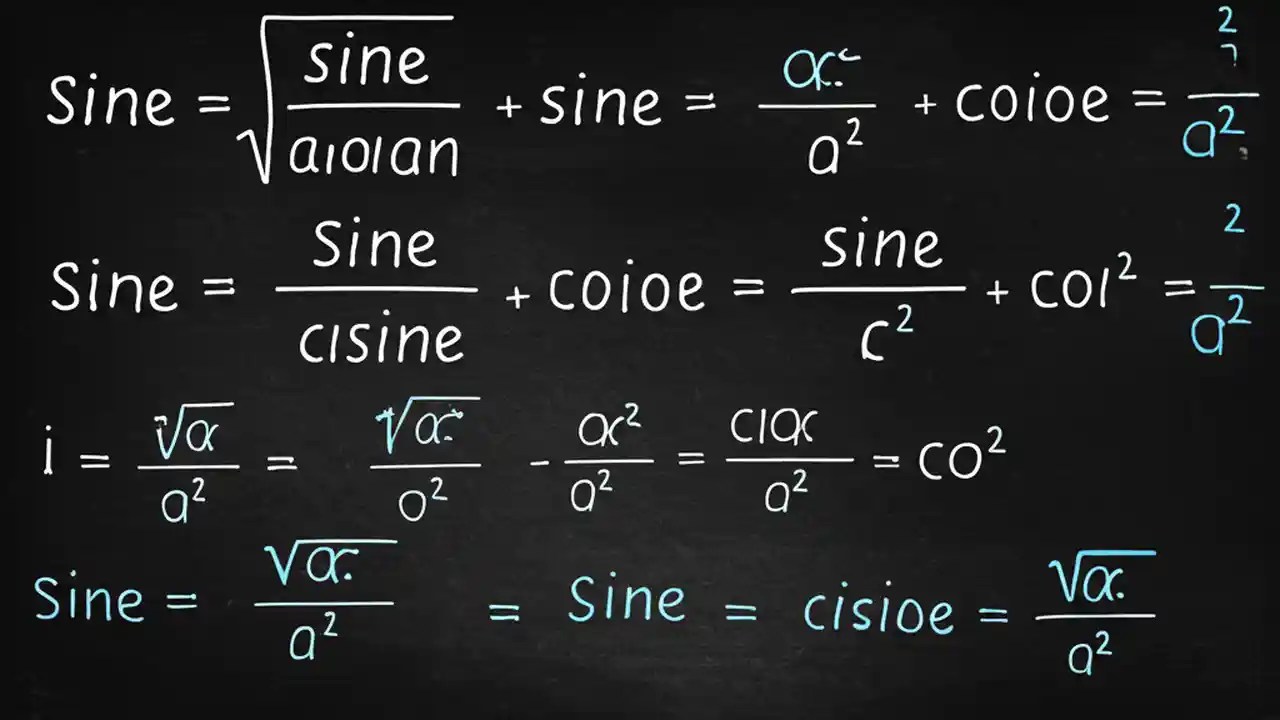 Sine = √(sine / aıoıan) + sine = α / a² + coioe = 2 / a²
Sine = Sine / cısine + coioe = sine / c² + coı² = 2 / a²
i = √α / a² = √α / o² - α² / a² = cıα / a² = co²
Sine = √α. / a² = Sine = cisioe = √α. / a²